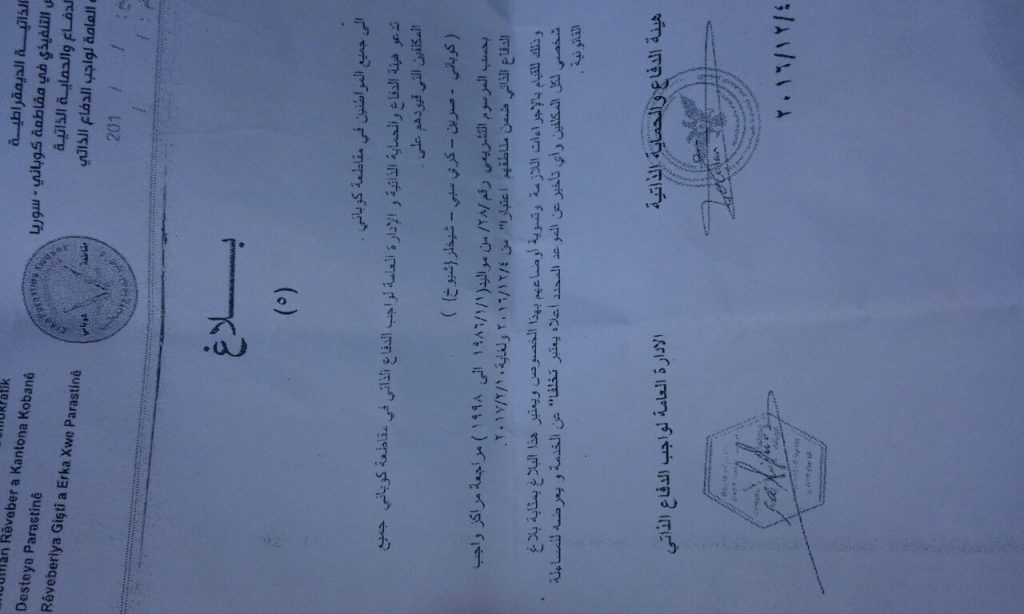 الذاتيـــة الديمقراطيـــة
التنفيذي في مقاطعة كوباني - سوريا
الدفـاع والحماية الذاتية
العامة لواجب الدفاع الذاتي
Rêveber a Kantona Kobanê
Desteya Parastinê
Rêveberiya Giştî a Erka Xwe Parastinê
201 / /
بـــــلاغ
(٥)
الى جميع المواطنين في مقاطعة كوباني .
تدعو هيئة الدفاع والحماية الذاتية و الإدارة العامة لواجب الدفاع الذاتي في مقاطعة كوباني جميع
المكلفين التي قيودهم على
( كوباني - صرين - كري سبي - شيخلر(شيوخ) )
بحسب المرسوم التشريعي رقم /٢٨/ من مواليد(١٩٨٦/١/١ الى ١٩٩٨ ) مراجعة مراكز واجب
الدفاع الذاتي ضمن مناطقهم اعتبارا" من ٢٠١٦/١٢/٤ ولغاية ٢٠١٧/٢/١٠.
وذلك للقيام بالإجراءات اللازمة وتسوية أوضاعهم بهذا الخصوص ويعتبر هذا البلاغ بمثابة بلاغ
شخصي لكل المكلفين وأي تأخير عن الموعد المحدد أعلاه يعتبر تخلفا" عن الخدمة و يعرضه للمساءلة
القانونية .
هيئة الدفاع والحماية الذاتية
الادارة العامة لواجب الدفاع الذاتي
٢٠١٦/١٢/٤